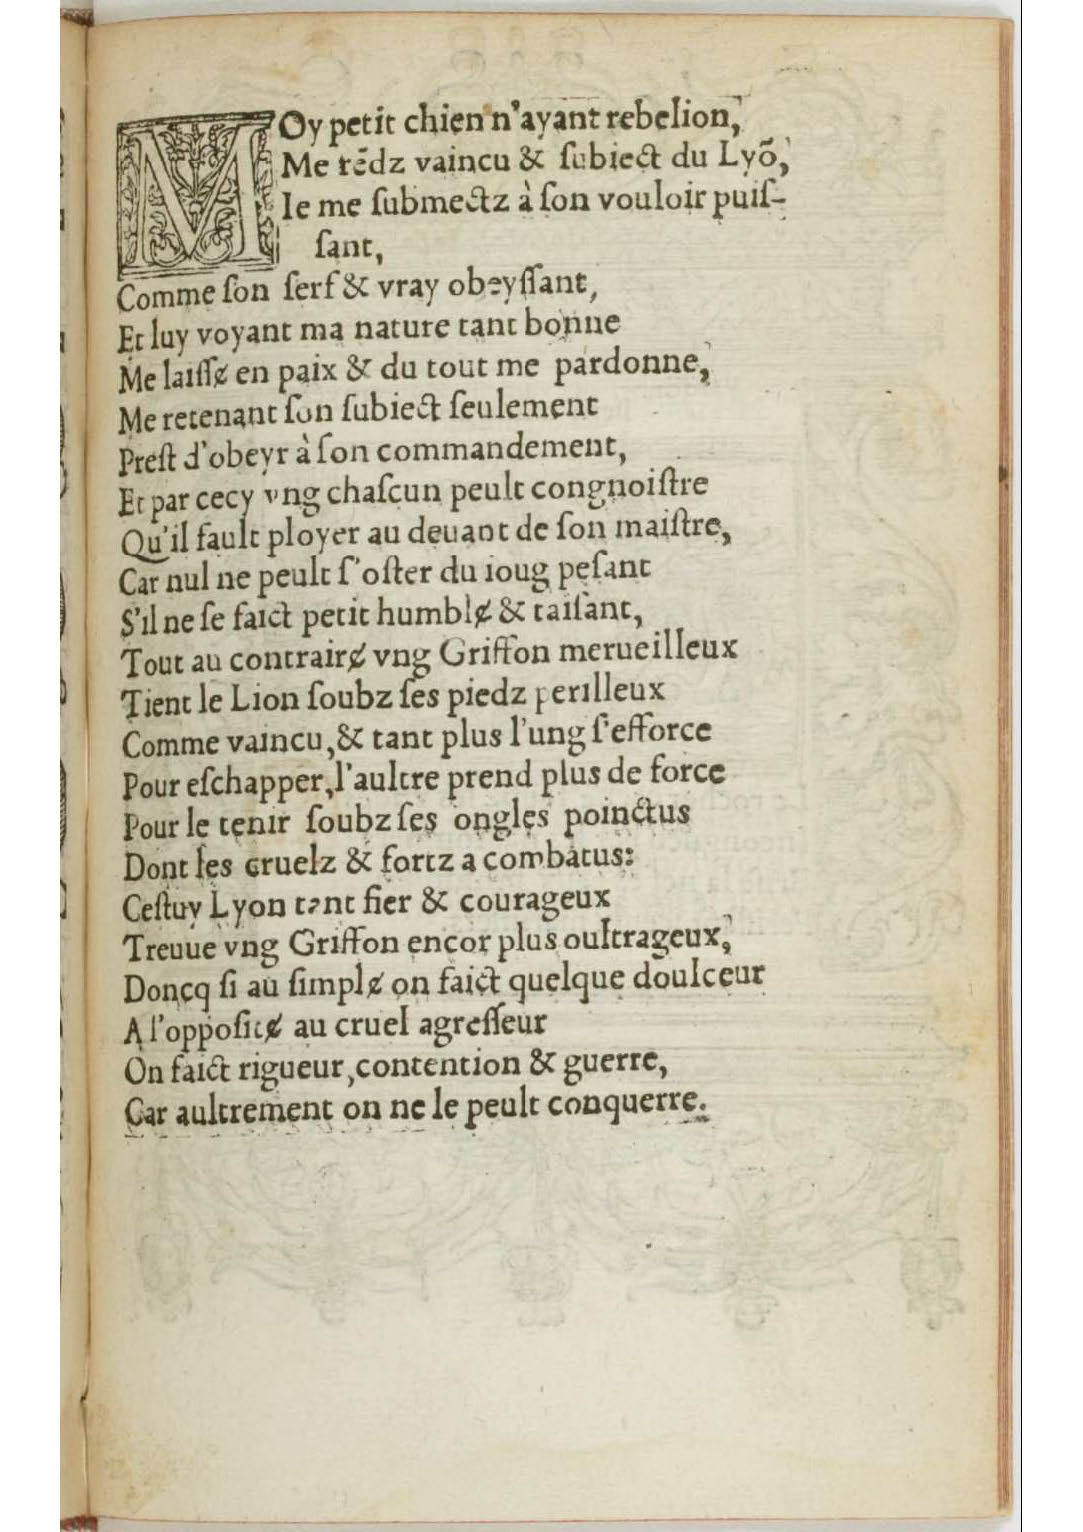 MOy petit chien n'ayant rebelion,
Me rēdz vaincu & ſubiect du Lyō,
Ie me ſubmectz à ſon vouloir puiſ-
ſant,
Comme ſon ſerf & vray obeyſſant,
Et luy voyant ma nature tant bonne
Me laiſſɇ en paix & du tout me pardonne,
Me retenant ſon ſubiect ſeulement
Preſt d'obeyr à ſon commandement,
Et par cecy vng chaſcun peult congnoiſtre
Qu'il fault ployer au deuant de ſon maiſtre,
Car nul ne peult ſ'oſter du ioug peſant
S'il ne ſe faict petit humblɇ & taiſant,
Tout au contrairɇ vng Griffon merueilleux
Tient le Lion ſoubz ſes piedz perilleux
Comme vaincu, & tant plus l'ung ſ'efforce
Pour eſchapper, l'aultre prend plus de force
Pour le tenir ſoubz ſes ongles poinctus
Dont les cruelz & fortz a combatus:
Ceſtuy Lyon tant fier & courageux
Treuue vng Griffon encor plus oultrageux,
Doncq ſi au ſimplɇ on faict quelque doulceur
A l'oppoſitɇ au cruel agreſſeur
On faict rigueur, contention & guerre,
Car aultrement on ne le peult conquerre.